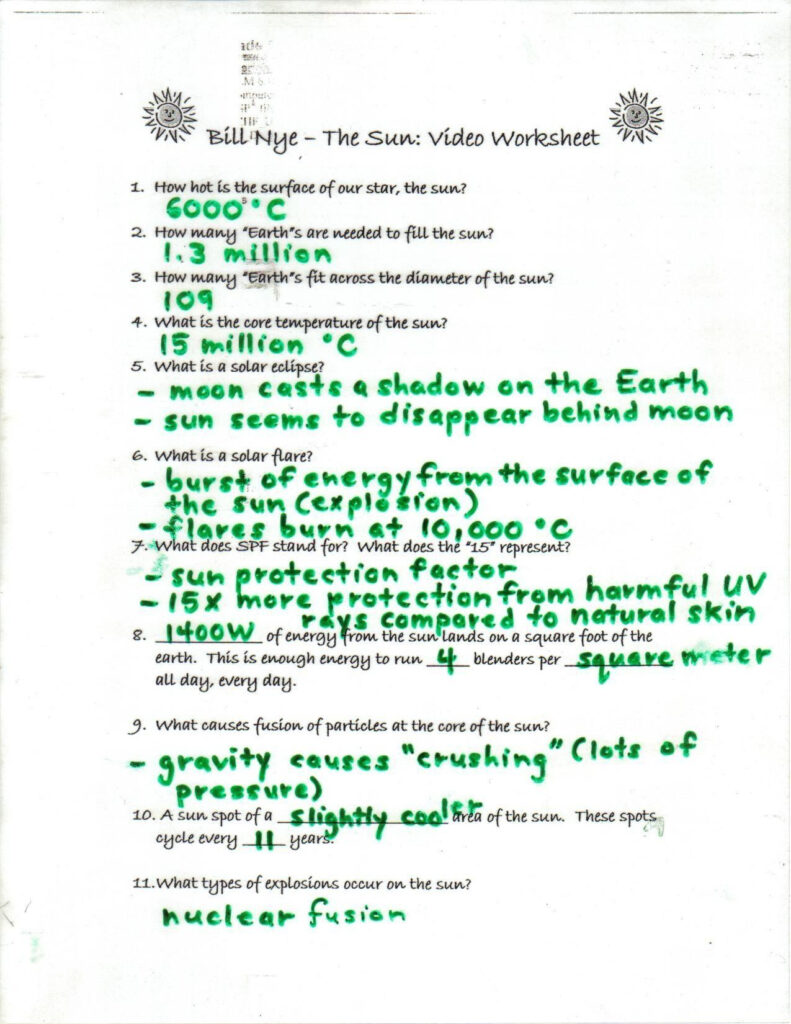 Bill Nye – The Sun: Video Worksheet
1. How hot is the surface of our star, the sun?
6000°C
2. How many "Earth"s are needed to fill the sun?
1.3 million
3. How many "Earth"s fit across the diameter of the sun?
109
4. What is the core temperature of the sun?
15 million °C
5. What is a solar eclipse?
- moon casts a shadow on the Earth
- sun seems to disappear behind moon
6. What is a solar flare?
- burst of energy from the surface of
the sun (explosion)
- flares burn at 10,000 °C
7. What does SPF stand for? What does the "15" represent?
- sun protection factor
- 15x more protection from harmful UV
rays compared to natural skin
8. 1400W of energy from the sun lands on a square foot of the
earth. This is enough energy to run 4 blenders per square meter
all day, every day.
9. What causes fusion of particles at the core of the sun?
- gravity causes "crushing" (lots of
pressure)
10. A sun spot of a slightly cooler area of the sun. These spots
cycle every 11 years.
11.What types of explosions occur on the sun?
nuclear fusion